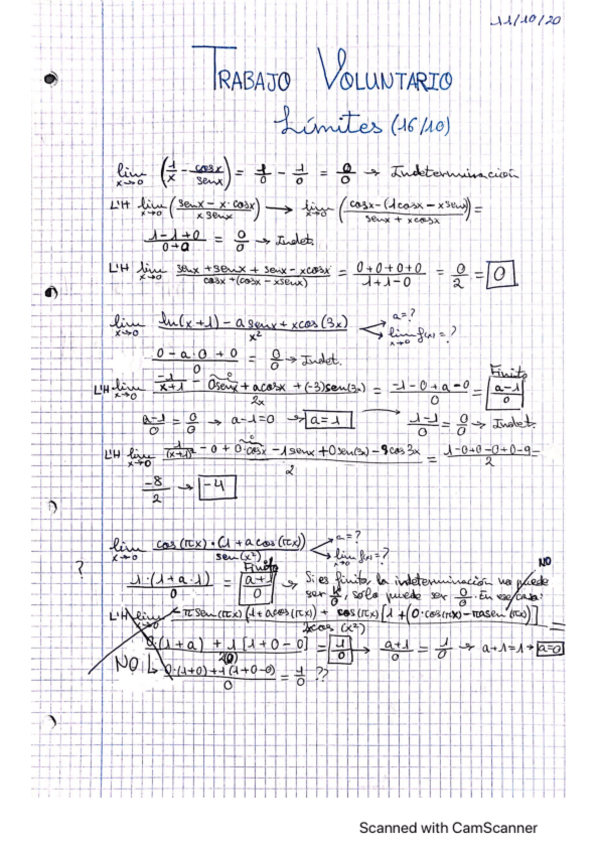 11/10/20
TRABAJO VOLUNTARIO
Límites (16/10)
lim x→0 (1/x - cosx/senx) = 1/0 - 1/0 = 0/0 → Indeterminación
L'H lim x→0 (senx - x·cosx / x senx) → lim x→0 (cosx - (1cosx - xsenx) / senx + xcosx) =
1-1+0 / 0+0 = 0/0 → Indet.
L'H lim x→0 senx + senx + senx - xcosx / cosx + (cosx - xsenx) = 0+0+0+0 / 1+1-0 = 0/2 = 0
lim x→0 ln(x+1) - a senx + xcos(3x) / x² a=? lim x→0 f(x) = ?
0 - a·0 + 0 / 0 = 0/0 → Indet.
Finito
L'H lim x→0 -1/x+1 - 0senx + acosx + (-3)sen(3x) / 2x = -1-0+a-0 / 0 = a-1 / 0
a-1 / 0 = 0/0 → a-1=0 → a=1 1-1 / 0 = 0/0 → Indet.
L'H lim x→0 1/(x+1)² - 0 + 0·cosx - 1senx + 0sen(3x) - 9cos3x / 2 = 1-0+0-0+0-9 / 2 =
-8/2 → -4
? lim x→0 cos(πx)·(1+acos(πx)) / sen(x²) a=? lim x→0 f(x) = ?
1·(1+a·1) / 0 = Finito a+1 / 0 → Si es finito, la indeterminación no puede
ser k/0, solo puede ser 0/0. En ese caso: NO
L'H lim x→0 -πsen(πx)(1+acos(πx)) + cos(πx)[1+(0·cos(πx) - πasen(πx))] / 2xcos(x²) =
0·(1+a) + 1[1+0-0] / 2·0 = 1/0 → a+1 / 0 = 1/0 → a+1=1 → a=0
NO L 0·(1+0)+1(1+0-0) / 0 = 1/0 ??
Scanned with CamScanner